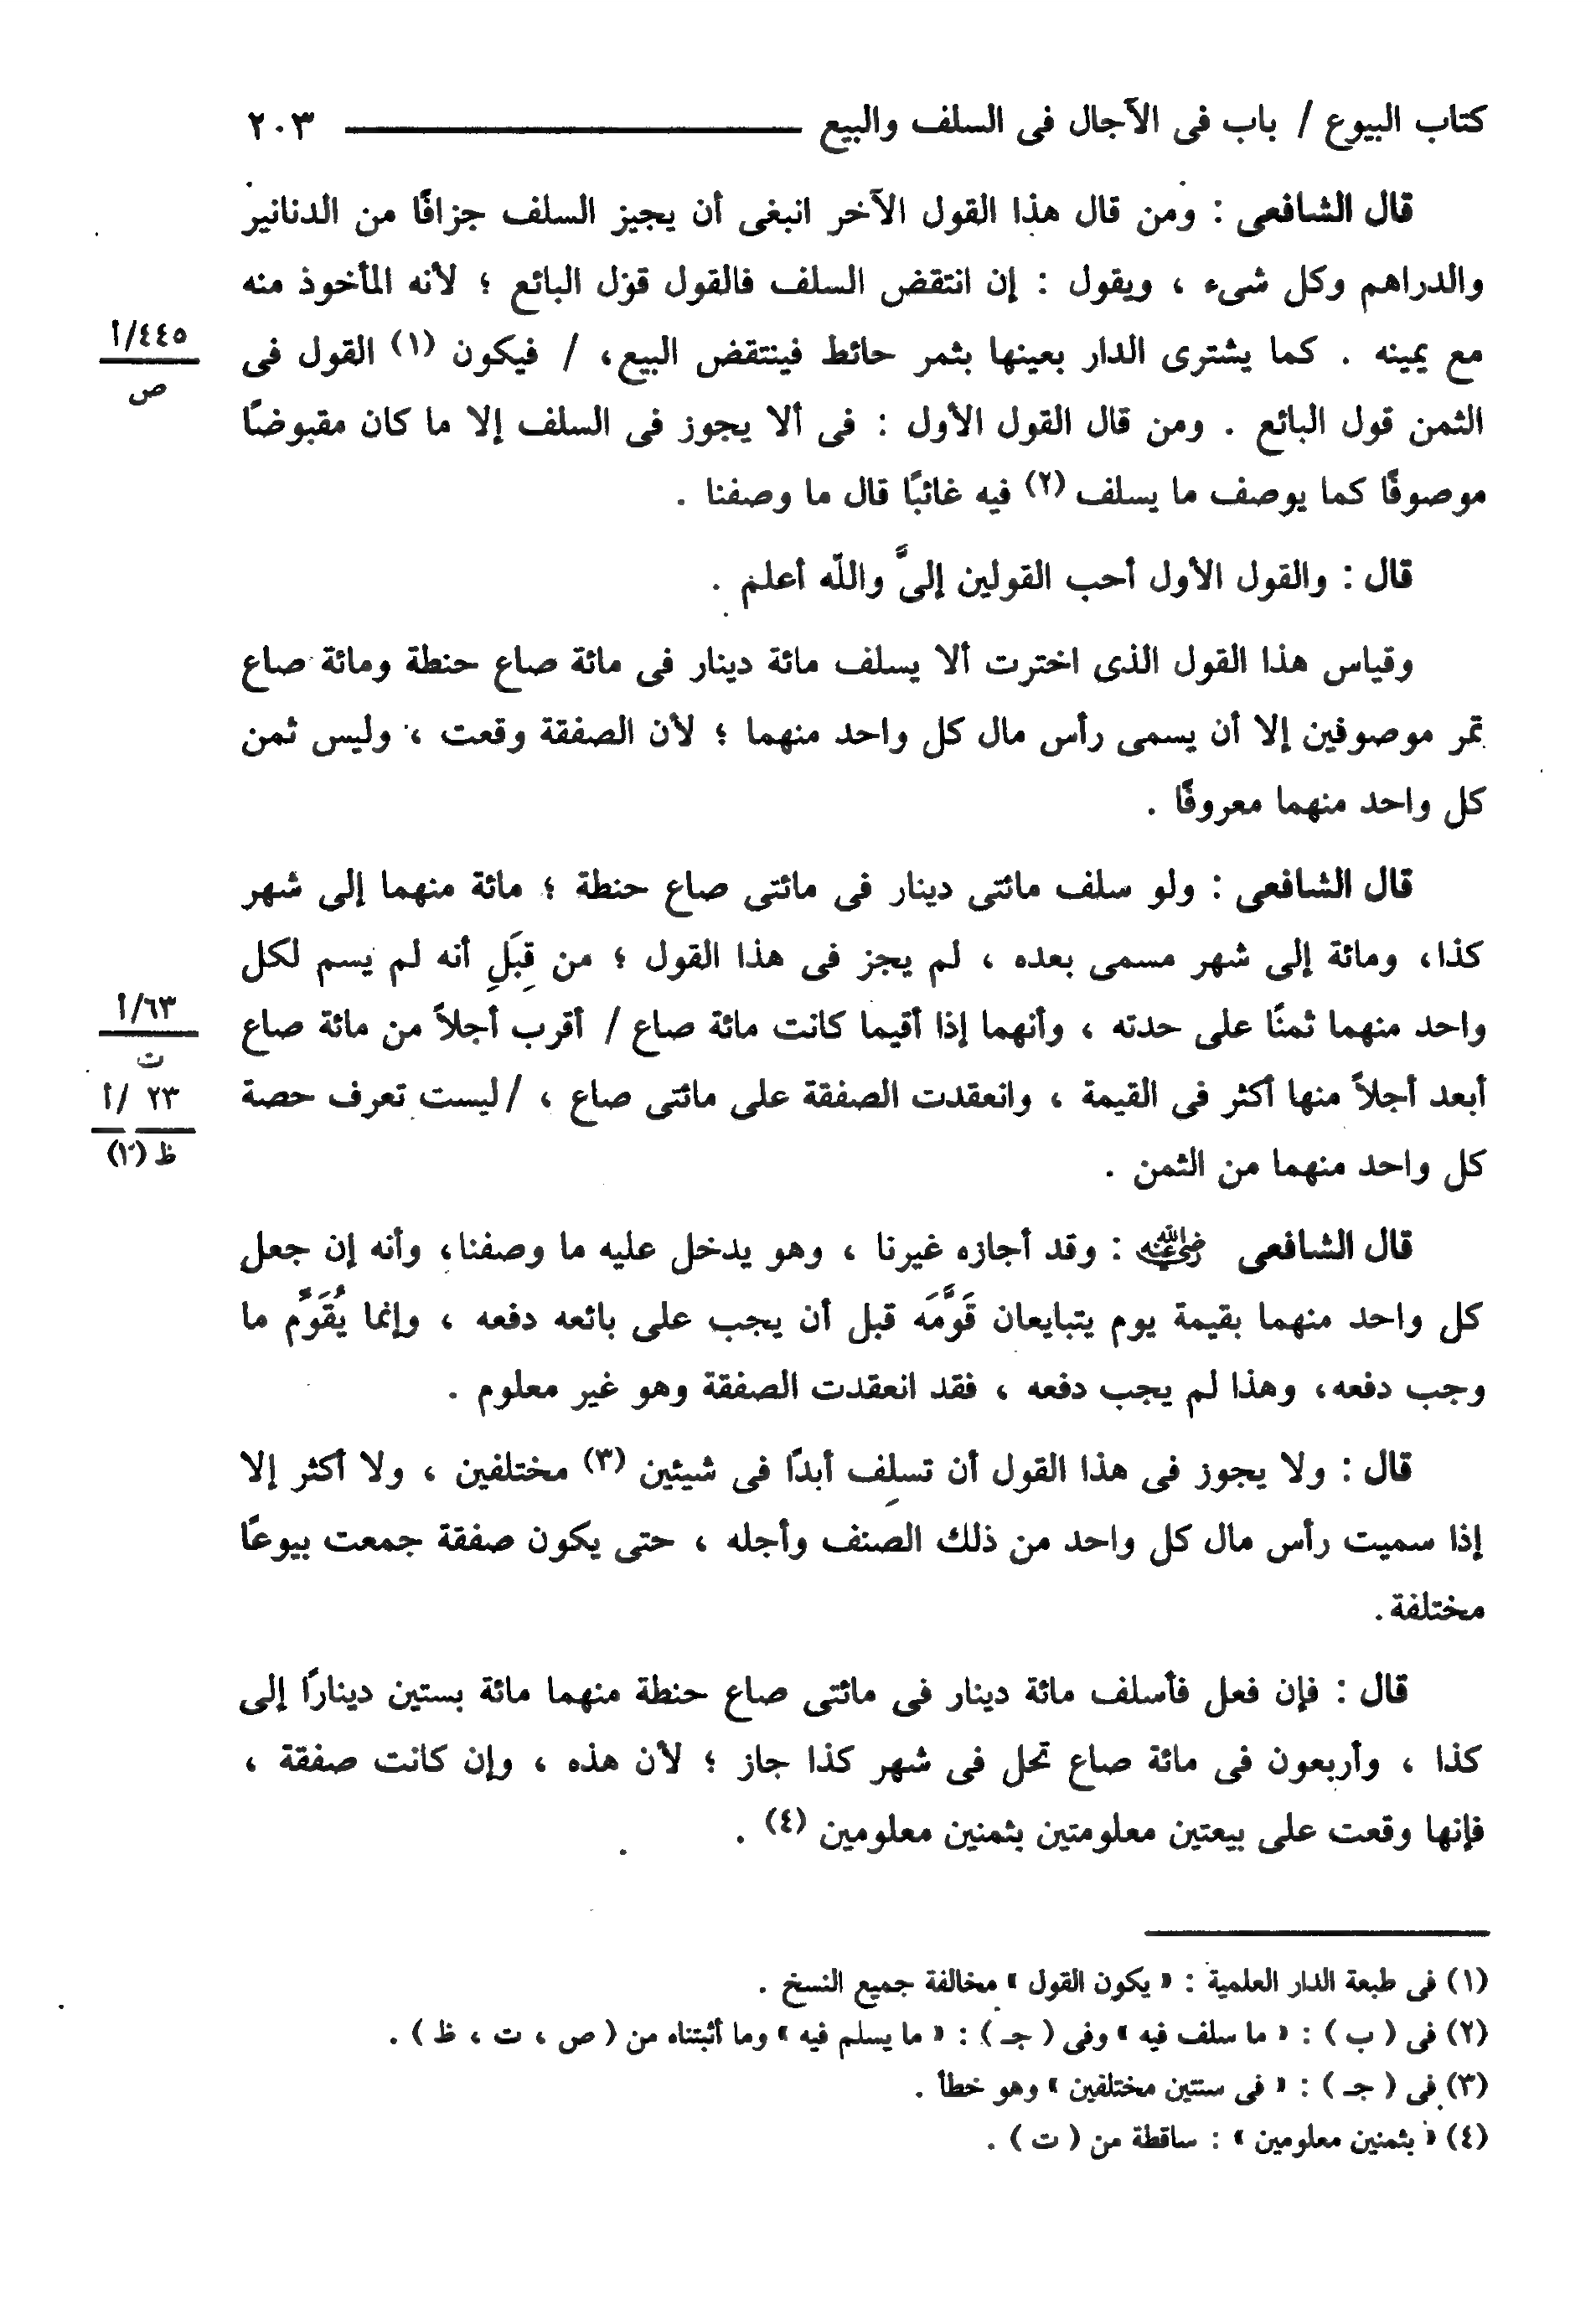 كتاب البيوع / باب فى الآجال فى السلف والبيع ٢٠٣
قال الشافعى : ومن قال هذا القول الآخر انبغى أن يجيز السلف جزافًا من الدنانير
والدراهم وكل شىء ، ويقول : إن انتقض السلف فالقول قول البائع ؛ لأنه المأخوذ منه
مع يمينه . كما يشترى الدار بعينها بثمر حائط فينتقض البيع، / فيكون (١) القول فى
٤٤٥/أ
ص
الثمن قول البائع . ومن قال القول الأول : فى ألا يجوز فى السلف إلا ما كان مقبوضًا
موصوفًا كما يوصف ما يسلف (٢) فيه غائبًا قال ما وصفنا .
قال : والقول الأول أحب القولين إلىَّ والله أعلم .
وقياس هذا القول الذى اخترت ألا يسلف مائة دينار فى مائة صاع حنطة ومائة صاع
تمر موصوفين إلا أن يسمى رأس مال كل واحد منهما ؛ لأن الصفقة وقعت ، وليس ثمن
كل واحد منهما معروفًا .
قال الشافعى : ولو سلف مائتى دينار فى مائتى صاع حنطة ؛ مائة منهما إلى شهر
كذا، ومائة إلى شهر مسمى بعده ، لم يجز فى هذا القول ؛ من قِبَلِ أنه لم يسم لكل
واحد منهما ثمنًا على حدته ، وأنهما إذا أقيما كانت مائة صاع / أقرب أجلاً من مائة صاع
٦٣/أ
ت
أبعد أجلاً منها أكثر فى القيمة ، وانعقدت الصفقة على مائتى صاع ، / ليست تعرف حصة
٢٣ /أ
ظ (١٠)
كل واحد منهما من الثمن .
قال الشافعى رضي الله عنه : وقد أجازه غيرنا ، وهو يدخل عليه ما وصفنا، وأنه إن جعل
كل واحد منهما بقيمة يوم يتبايعان قَوَّمَه قبل أن يجب على بائعه دفعه ، وإنما يُقَوَّم ما
وجب دفعه، وهذا لم يجب دفعه ، فقد انعقدت الصفقة وهو غير معلوم .
قال : ولا يجوز فى هذا القول أن تسلِف أبدًا فى شيئين (٣) مختلفين ، ولا أكثر إلا
إذا سميت رأس مال كل واحد من ذلك الصنف وأجله ، حتى يكون صفقة جمعت بيوعًا
مختلفة .
قال : فإن فعل فأسلف مائة دينار فى مائتى صاع حنطة منهما مائة بستين دينارًا إلى
كذا ، وأربعون فى مائة صاع تحل فى شهر كذا جاز ؛ لأن هذه ، وإن كانت صفقة ،
فإنها وقعت على بيعتين معلومتين بثمنين معلومين (٤) .
(١) فى طبعة الدار العلمية : « يكون القول » مخالفة جميع النسخ .
(٢) فى ( ب ) : « ما سلف فيه » وفى ( جـ ) : « ما يسلم فيه » وما أثبتناه من ( ص ، ت ، ظ ) .
(٣) فى ( جـ ) : « فى سنتين مختلفين » وهو خطأ .
(٤) « بثمنين معلومين » : ساقطة من ( ت ) .